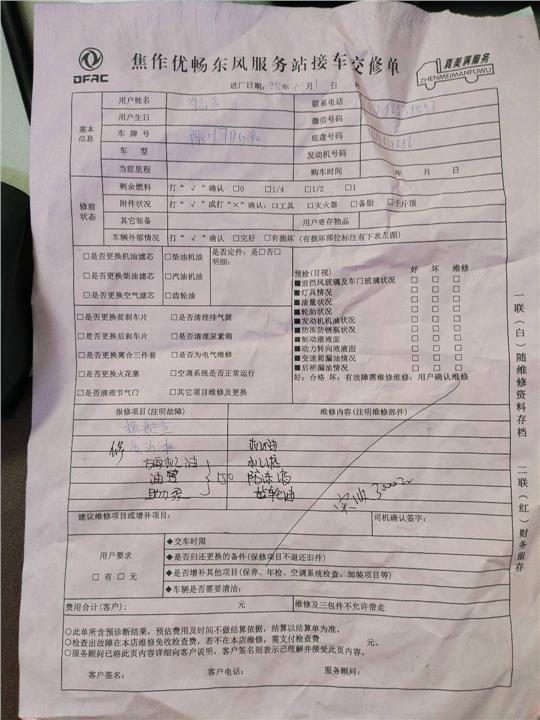 DFAC
焦作优畅东风服务站接车交修单
真美满服务
ZHENMEIMANFUWU
进厂日期: 年 月 日
基本信息
用户姓名 联系电话
用户生日 微信号码
车牌号 底盘号码
车型 发动机号码
当前里程 购车时间 年 月 日
修前状态
剩余燃料 打“√”确认 □0 □1/4 □1/2 □1
附件状况 打“√”或打“×”确认:□工具 □灭火器 □备胎 □千斤顶
其它装备 用户寄存物品
车辆外部情况 打“√”确认 □完好 □有损坏(有损部位标注有下表左图)
□是否更换机油滤芯 □柴油机油 是否定件:是□否□
明细:
□是否更换柴油滤芯 □汽油机油
□是否更换空气滤芯 □齿轮油
□是否更换前刹车片 □是否清理排气筒
□是否更换后刹车片 □是否清理尿素箱
□是否更换离合三件套 □是否为电气维修
□是否更换火花塞 □空调系统是否正常运行
□是否清理节气门 □其它项目维修及更换
预检(目视) 好 坏 维修
■前挡风玻璃及车门玻璃状况 □ □ □
■灯具情况 □ □ □
■油量状况 □ □ □
■轮胎状况 □ □ □
■发动机机油状况 □ □ □
■防冻防锈瓶状况 □ □ □
■制动液液面 □ □ □
■动力转向液液面 □ □ □
■变速箱漏油情况 □ □ □
■后桥漏油情况 □ □ □
好:合格 坏:有故障需维修维修:用户确认维修
报修项目(注明故障) 维修内容(注明维修部件)
修
机油
油管 150 防冻液
助力泵 齿轮油
实收3000元
建议维修项目或增补项目: 司机确认签字:
用户要求
□有 □无
◆交车时限
◆是否归还更换的备件(保修项目不退还旧件)
◆是否增补其他项目(保养、年检、空调系统检查、加装项目等)
◆车辆是否需要清油:
费用合计(客户): 元 维修及三包件不允许带走
○此单所含预诊断结果,预估费用及时间不做结算依据,结算以结算单为准。
○检查出故障在本店维修免收检查费,若不在本店维修,需支付检查费 元。
○服务顾问已将此页内容详细向客户说明,客户签名则表示已理解并接受此页内容。
客户签名: 客户电话: 服务顾问:
一联(白)随维修资料存档 二联(红)财务留存